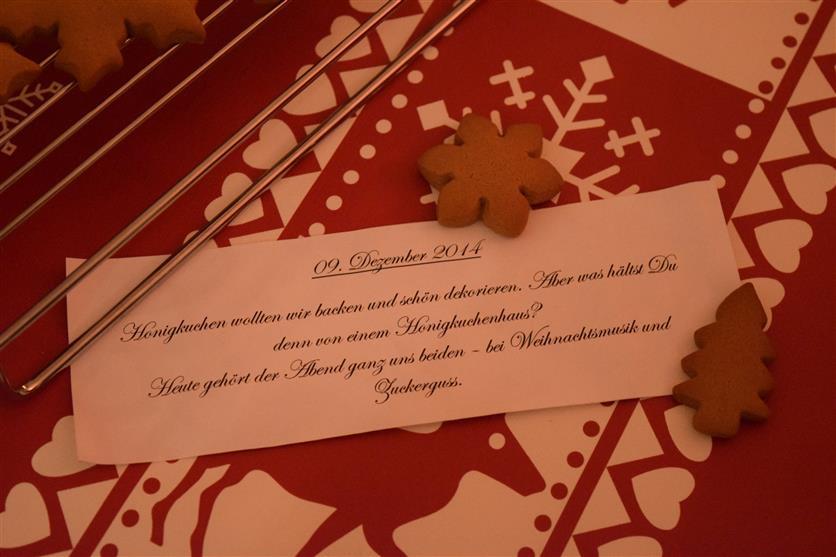 09. Dezember 2014
Honigkuchen wollten wir backen und schön dekorieren. Aber was hältst Du
denn von einem Honigkuchenhaus?
Heute gehört der Abend ganz uns beiden – bei Weihnachtsmusik und
Zuckerguss.